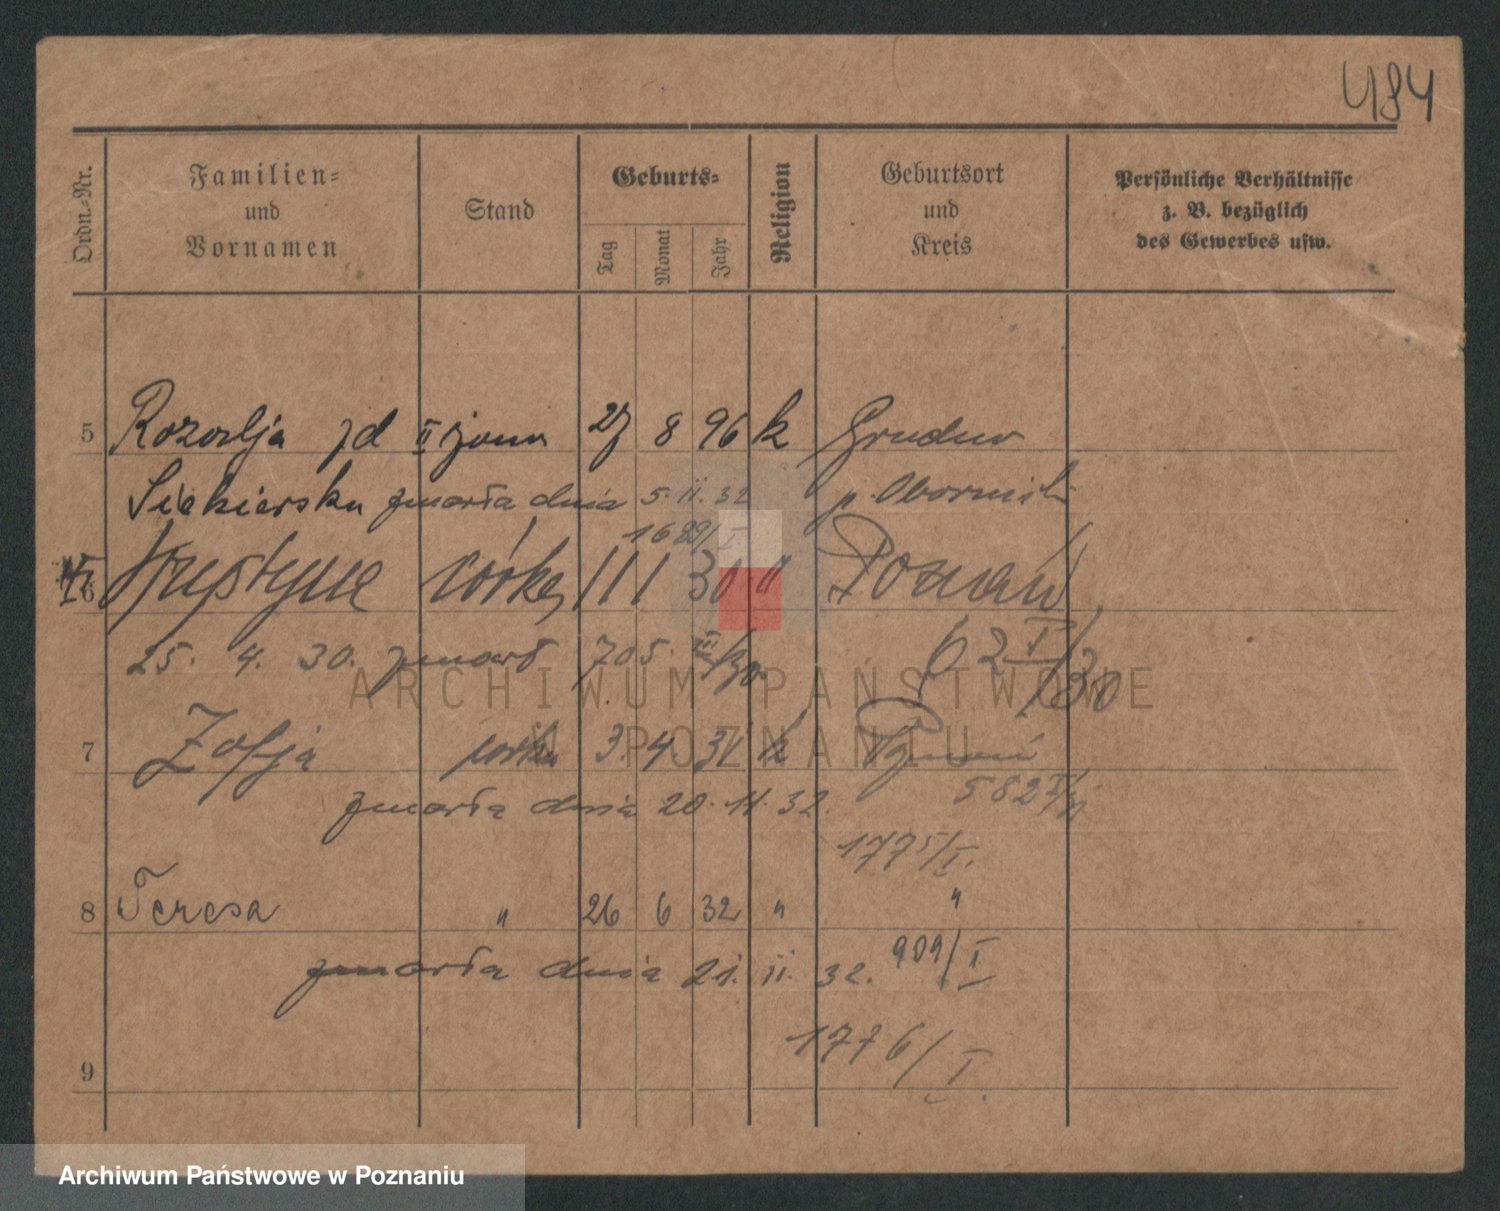 484
Ordn.-Nr.
Familien-
und
Vornamen
Stand
Geburts-
Tag
Monat
Jahr
Religion
Geburtsort
und
Kreis
Persönliche Verhältnisse
z. B. bezüglich
des Gewerbes usw.
5 Rozalja zd II żona 27 8 96 k
Siekierska zmarła dnia 5. ii. 32 p. Obornik
1689/I
6 Krystyna córka 11 1 30 " Poznań
25. 4. 30. zmarł 705. III/30. 62 I/30
7 Zofja córka 3. 4 31 k Poznań
zmarła dnia 20. 11. 32. 582 I/31
1775/I.
8 Teresa " 26 6 32 " "
zmarła dnia 21. ii. 32. 909/I
1776/I.
9
ARCHIWUM PAŃSTWOWE
W POZNANIU
Archiwum Państwowe w Poznaniu